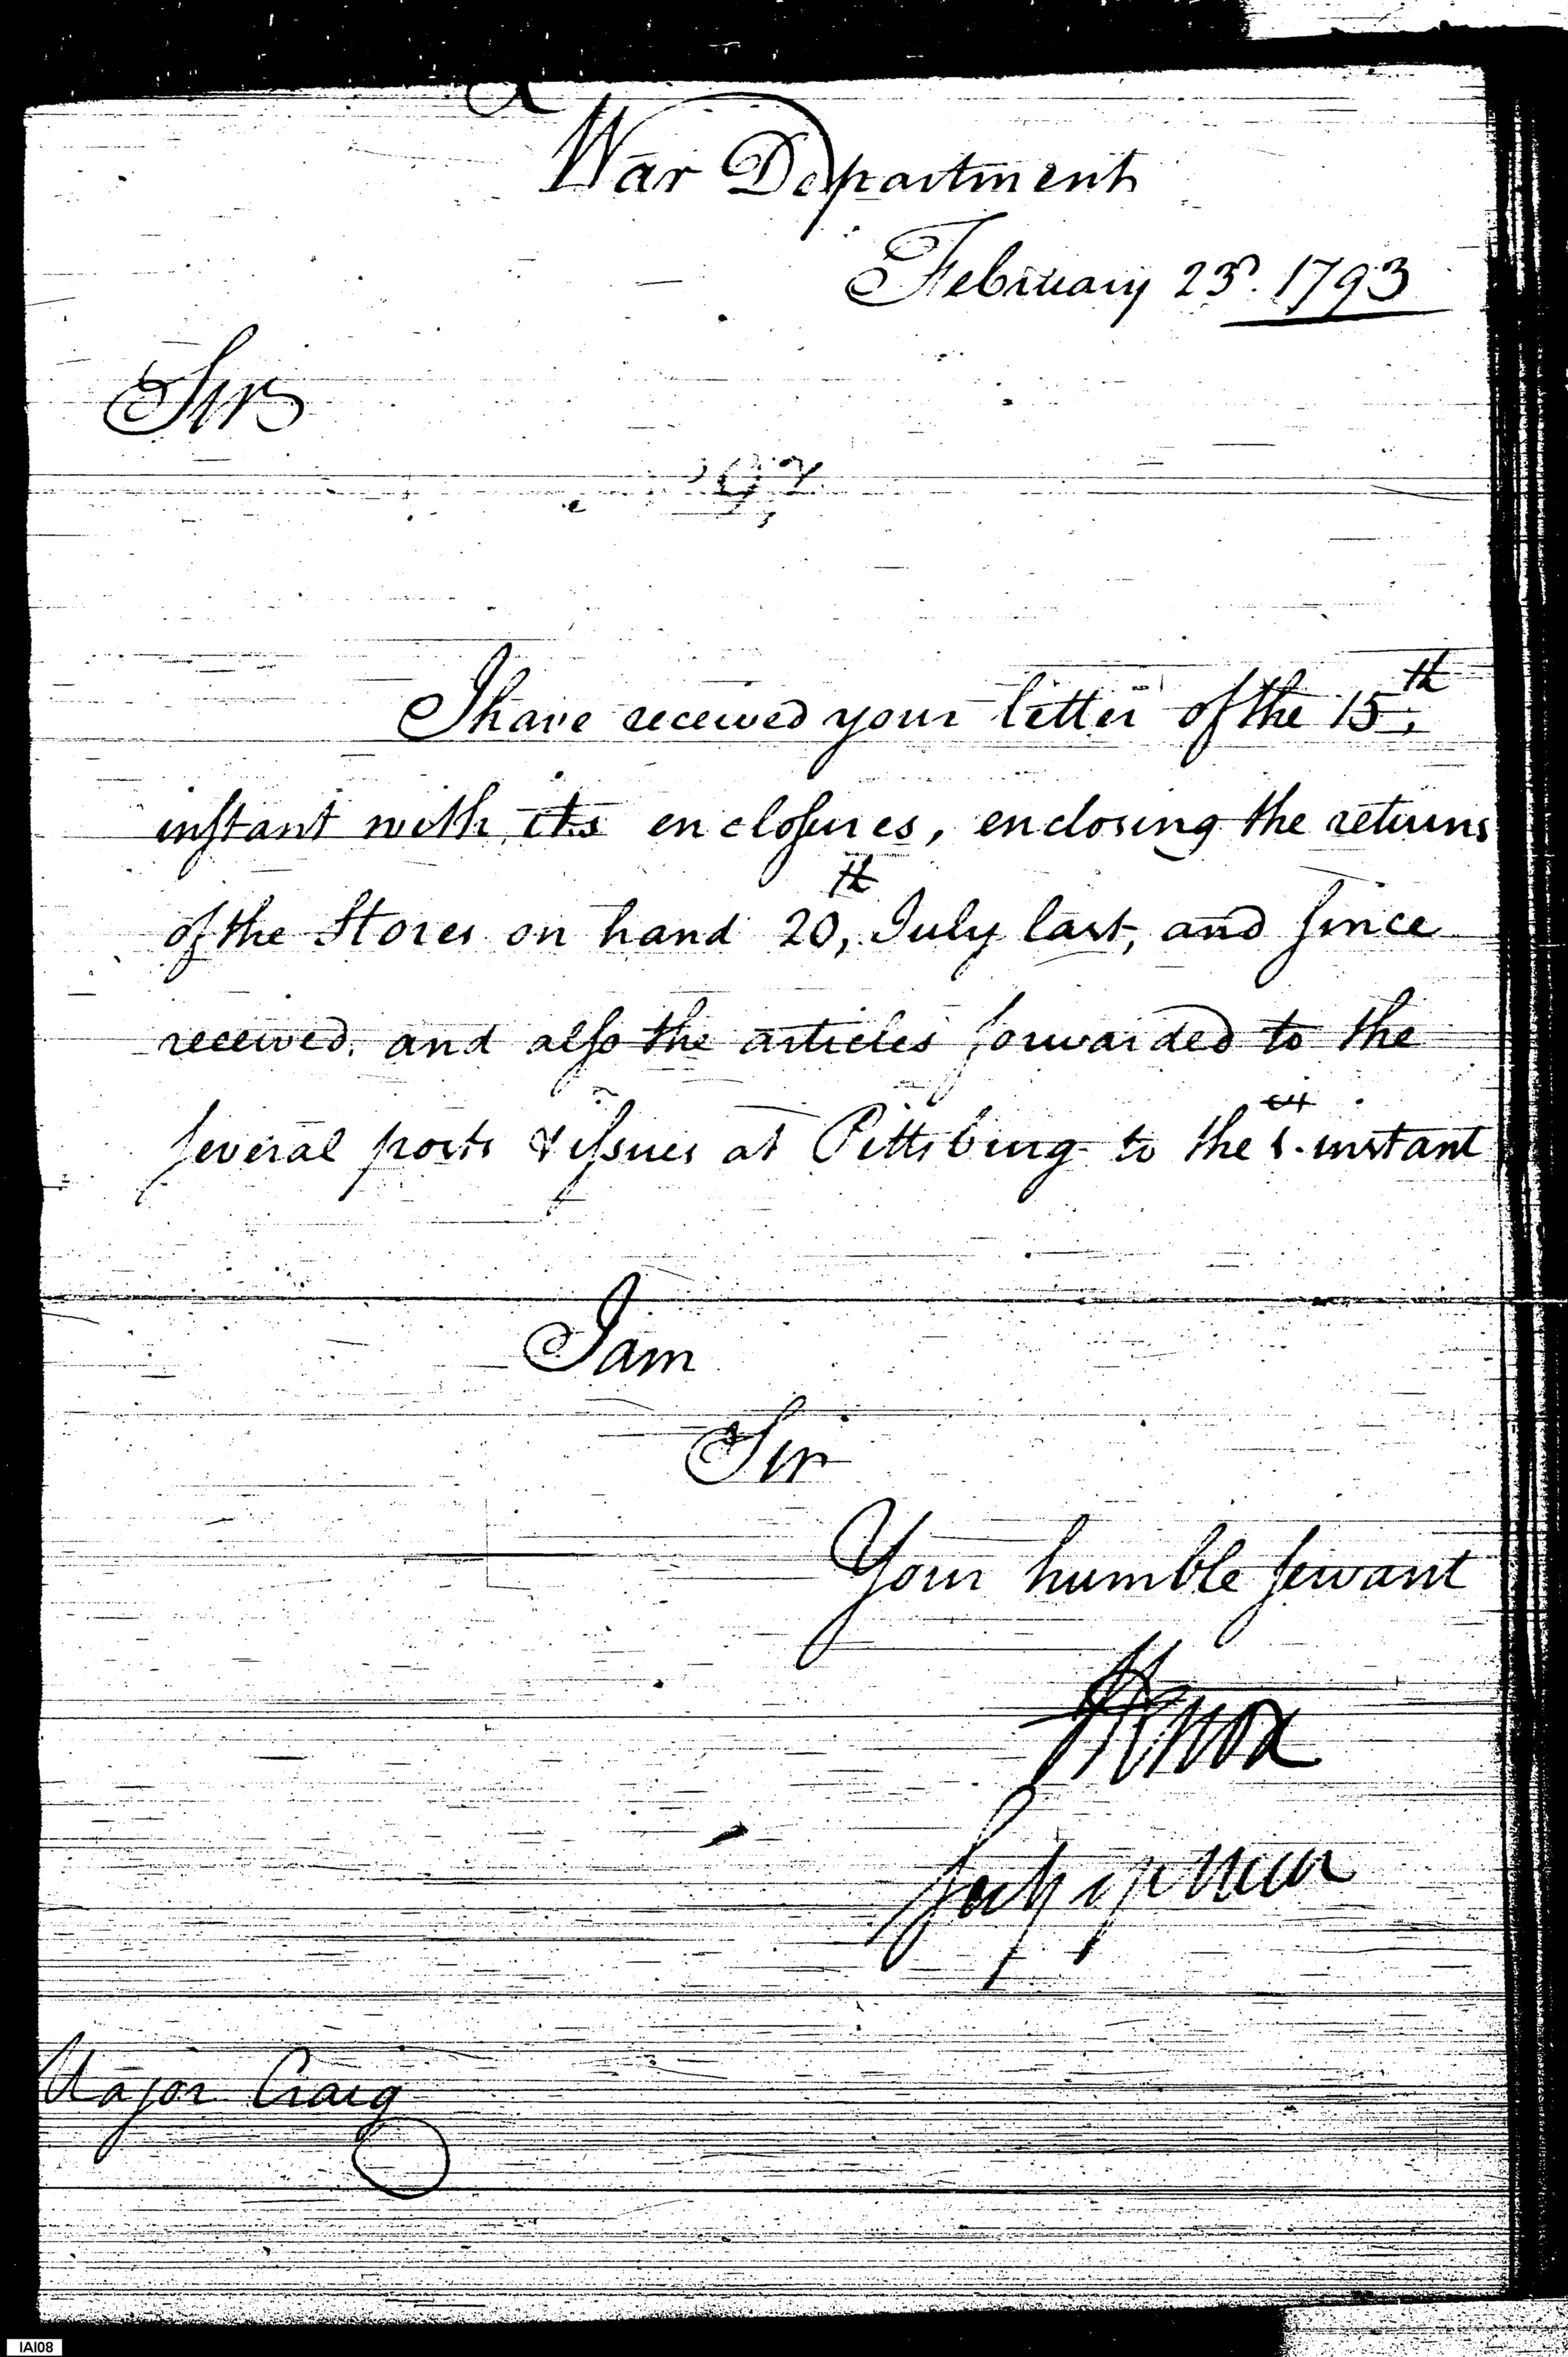 War Department
February 23d. 1793
Sir
I have received your letter of the 15th,
instant with its enclosures, enclosing the returns
of the Stores on hand 20th, July last, and since
received. and also the articles forwarded to the
several posts & issues at Pittsburg to the instant
I am
Sir
Your humble servant
HKnox
Secy of War
Major Craig
IAI08